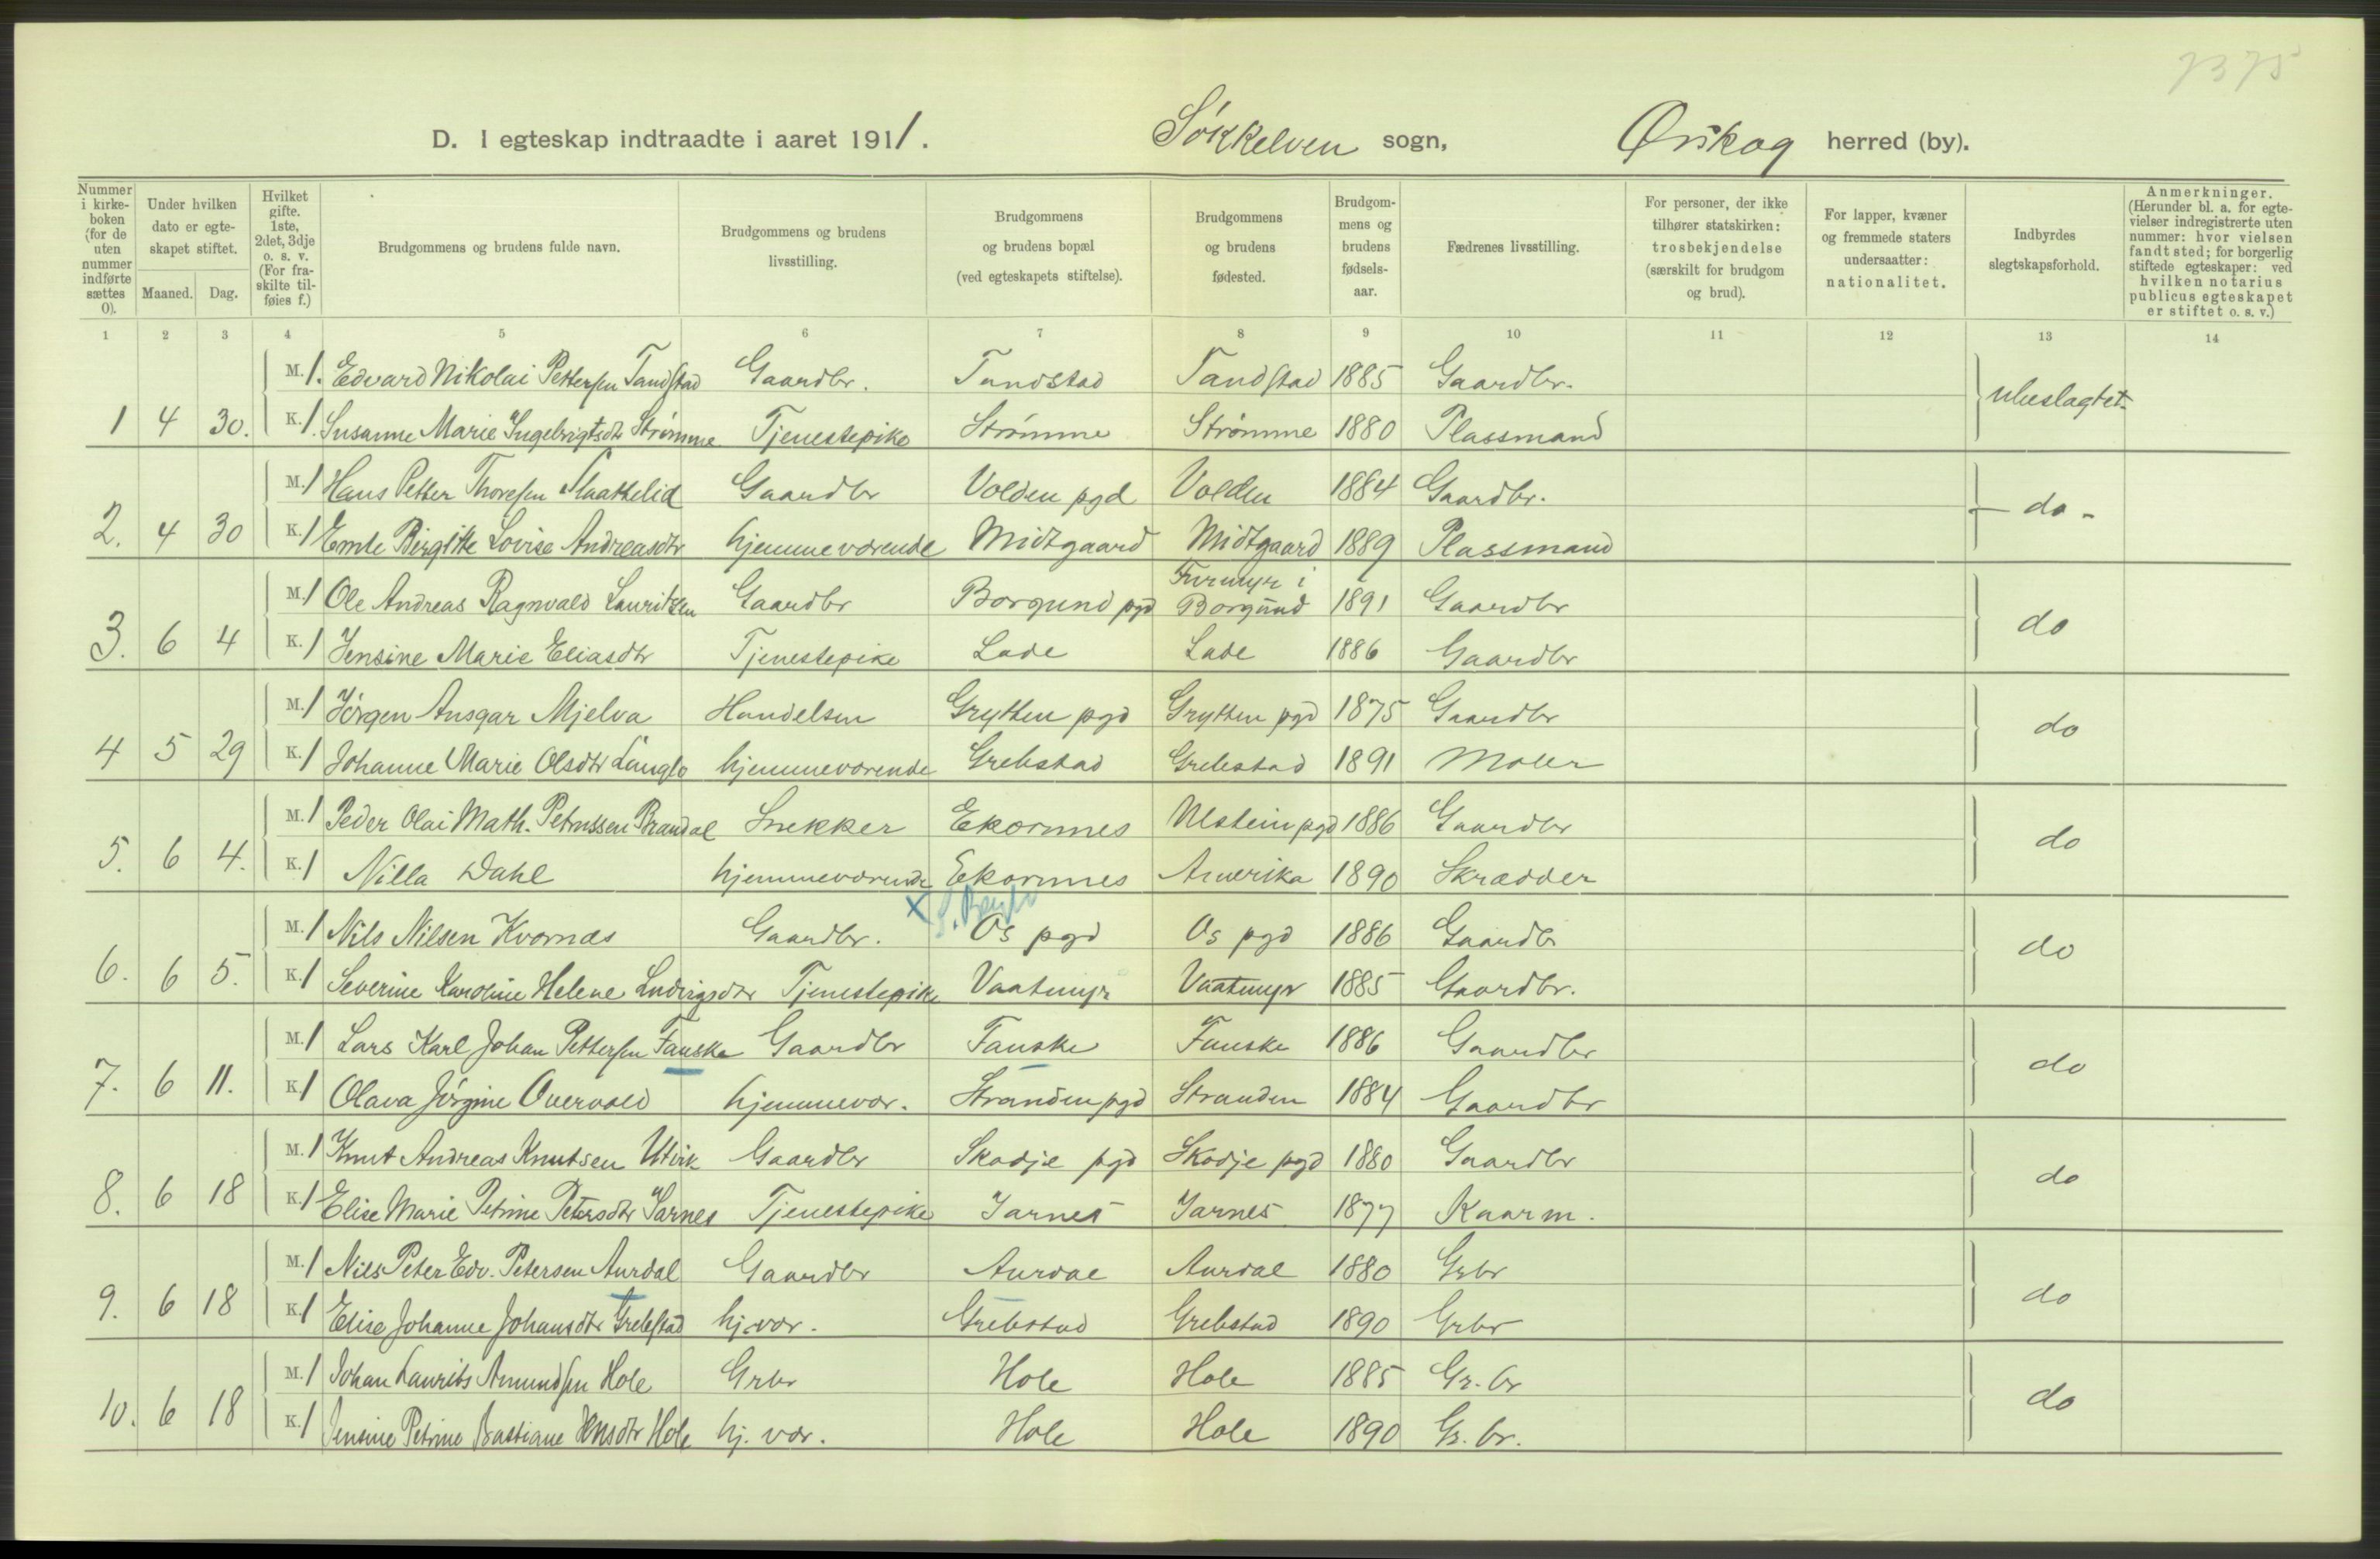 7375
D. I egteskap indtraadte i aaret 1911. Søkkelven sogn, Ørskog herred (by).
Nummer i kirke-boken (for de uten nummer indførte sættes 0).
Under hvilken dato er egte-skapet stiftet.
Maaned. Dag.
Hvilket gifte. 1ste, 2det, 3dje o. s. v. (For fra-skilte til-føies f.)
Brudgommens og brudens fulde navn.
Brudgommens og brudens livsstilling.
Brudgommens og brudens bopæl (ved egteskapets stiftelse).
Brudgommens og brudens fødested.
Brudgom-mens og brudens fødsels-aar.
Fædrenes livsstilling.
For personer, der ikke tilhører statskirken: trosbekjendelse (særskilt for brudgom og brud).
For lapper, kvæner og fremmede staters undersaatter: nationalitet.
Indbyrdes slegtskapsforhold.
Anmerkninger. (Herunder bl. a. for egte-vielser indregistrerte uten nummer: hvor vielsen fandt sted; for borgerlig stiftede egteskaper: ved hvilken notarius publicus egteskapet er stiftet o. s. v.)
1 2 3 4 5 6 7 8 9 10 11 12 13 14
M. 1. Edvard Nikolai Pettersen Tandstad Gaardbr. Tandstad Tandstad 1885 Gaardbr. ubeslagtet
1 4 30. K. 1. Susanne Marie Ingebrigtsdtr Strømme Tjenestepike Strømme Strømme 1880 Plassmand
M. 1 Hans Petter Thoresen Slaattelid Gaardbr Volden pgd Volden 1884 Gaardbr. do -
2. 4 30 K. 1 Emle Birgitte Lovise Andreasdtr hjemmeværende Midtgaard Midtgaard 1889 Plassmand
M. 1 Ole Andreas Ragnvald Lauritsen Gaardbr Borgund pgd Furmyr i Borgund 1891 Gaardbr do
3. 6 4 K. 1 Jensine Marie Eliasdtr Tjenestepike Lade Lade 1886 Gaardbr
M. 1 Jørgen Ansgar Mjelva Handelsm Grytten pgd Grytten pgd 1875 Gaardbr do
4 5 29 K. 1 Johanne Marie Olsdtr Langlo hjemmeværende Grebstad Grebstad 1891 Maler
M. 1 Peder Olai Math. Petrussen Brandal Snekker Ekornnes Ulstein pgd 1886 Gaardbr do
5. 6 4. K. 1 Nilla Dahl hjemmeværende Ekornnes Amerika 1890 Skrædder
M. 1 Nils Nilsen Kvarnæs Gaardbr. Os pgd Os pgd 1886 Gaardb do
6. 6 5. K. 1 Severine Karoline Helene Ludvigsdtr Tjenestepike Vaatmyr Vaatmyr 1885 Gaardbr.
M. 1 Lars Karl Johan Pettersen Fauske Gaardbr Fauske Fauske 1886 Gaardbr do
7. 6 11. K. 1 Olava Jørgine Overvold hjemmevær. Stranden pgd Stranden 1884 Gaardbr
M. 1 Knut Andreas Knutsen Utvik Gaardbr Skodje pgd Skodje pgd 1880 Gaardbr do
8. 6 18 K. 1 Elise Marie Petrine Petersdtr Jarnes Tjenestepike Jarnes Jarnes 1877 Kaarm.
M. 1 Nils Peter Edv. Petersen Aurdal Gaardbr Aurdal Aurdal 1880 Grbr do
9. 6 18 K. 1 Elise Johanne Johansdtr Grebstad hj.vær. Grebstad Grebstad 1890 Grbr
M. 1 Johan Laurits Amundsen Hole Grbr Hole Hole 1885 Gr. br do
10. 6 18 K. 1 Jensine Petrine Bastiane Jensdtr Hole hj. vær. Hole Hole 1890 Gr. br.